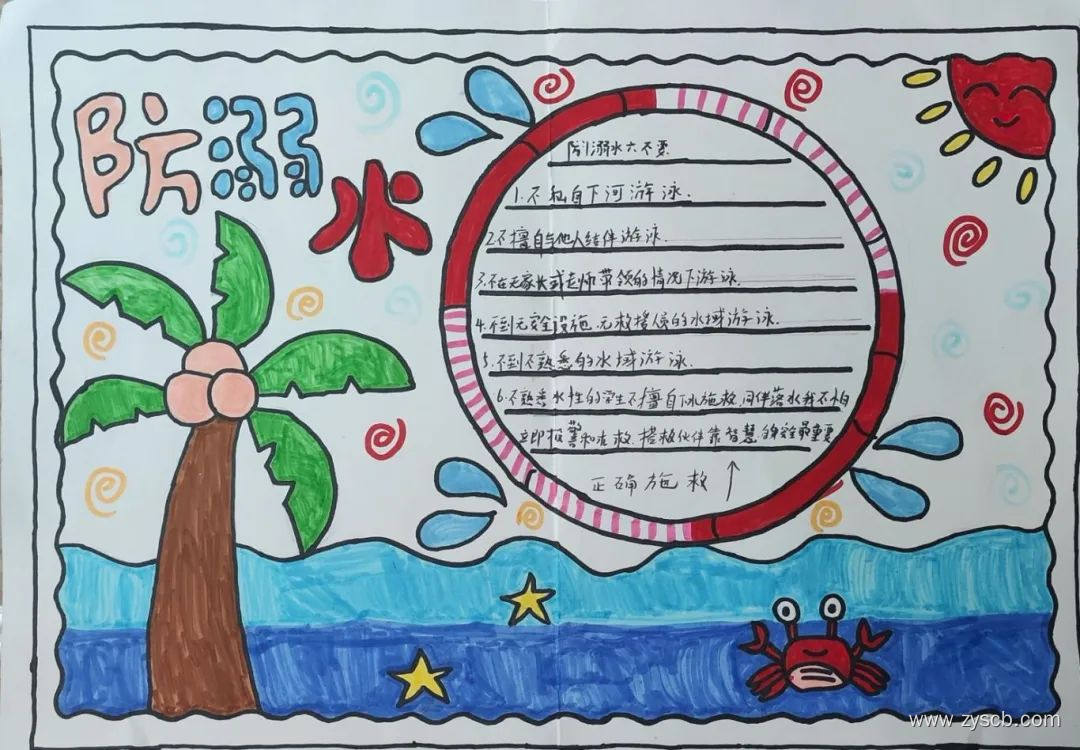 防溺水
防溺水六不要
1.不私自下河游泳.
2.不擅自与他人结伴游泳.
3.不在无家长或老师带领的情况下游泳.
4.不到无安全设施.无救援人员的水域游泳.
5.不到不熟悉的水域游泳.
6.不熟悉水性的学生不擅自下水施救.同伴落水我不怕
立即报警和去救.搭救伙伴靠智慧.安全最重要
正确施救↑
www.zyscb.com